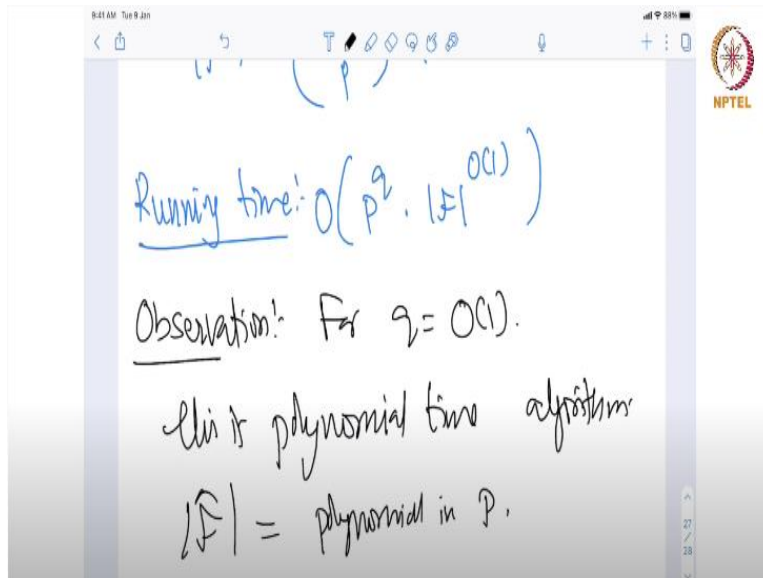 9:41 AM Tue 9 Jan
88%
T
NPTEL
( p ) .
Running time:- O( p^q . |F|^O(1) )
Observation:- For q = O(1).
this is polynomial time algorithm
|F̂| = polynomial in P.
27
/
28